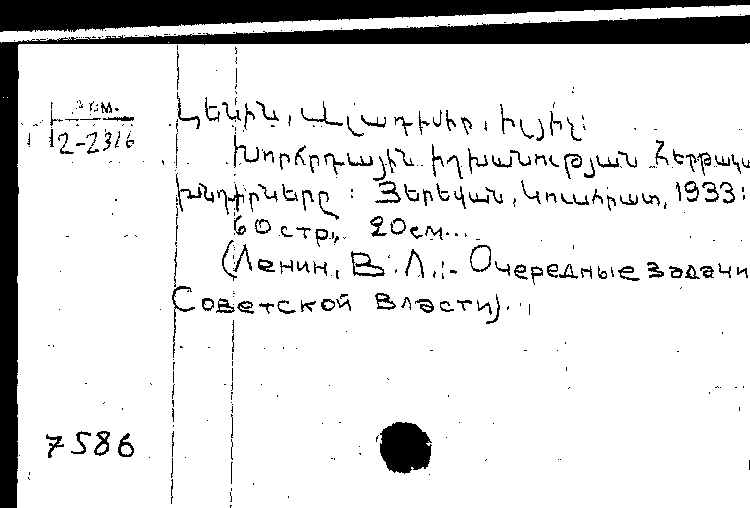 Арм.
2-2316
Լենին, Վլադիմիր, Իլյիչ:
Խորհրդային իշխանության հերթակա
խնդիրները : Յերեվան, Կուսհրատ, 1933:
60 стр., 20см...
(Ленин, В. Л.:- Очередные задачи
Советской Власти).
7586